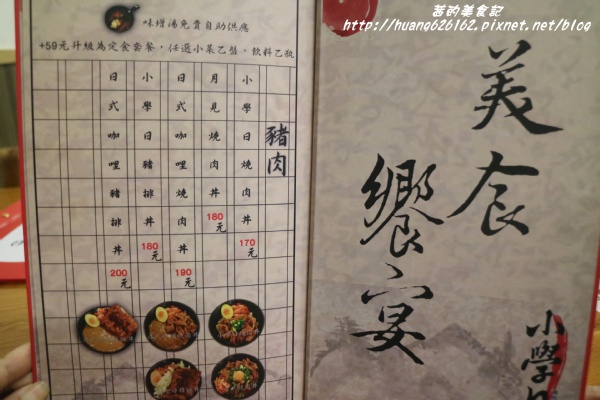 茜的美食記
http://huang626162.pixnet.net/blog
味增湯免費自助供應
+59元升級為定食套餐，任選小菜乙盤，飲料乙瓶
豬肉
小學日燒肉丼 170元
月見燒肉丼 180元
日式咖哩燒肉丼 190元
小學日豬排丼 180元
日式咖哩豬排丼 200元
美食
饗宴
小學